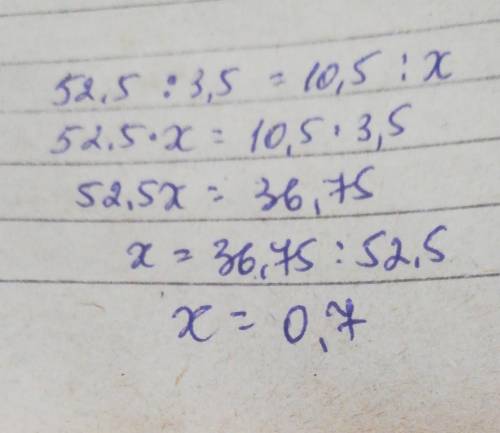 52,5 : 3,5 = 10,5 : x
52,5 · x = 10,5 · 3,5
52,5x = 36,75
x = 36,75 : 52,5
x = 0,7